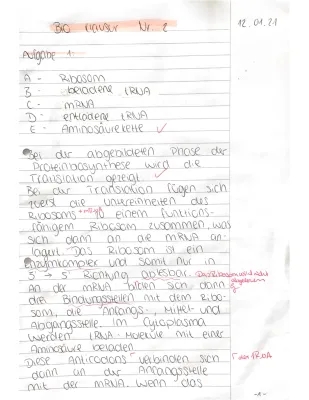 Bio Klausur Nr. 2
12.01.21
Aufgabe 1
A - Ribosom
B - beladene tRNA
C - mRNA
D - entladene tRNA
E - Aminosäurekette ✓
Bei der abgebildeten Phase der
Proteinbiosynthese wird die
Translation gezeigt.
Bei der Translation fügen sich
zuerst die Untereinheiten des
Ribosoms zu einem funktions-
fähigem Ribosom zusammen, was
sich dann an die mRNA an-
lagert. Das Ribosom ist ein
Enzymkomplex und somit nur in
5' → 3' Richtung ablesbar.
An der mRNA bilden sich dann
drei Bindungsstellen mit dem Ribo-
som, die Anfangs-, Mittel- und
Abgangsstelle. Im Cytoplasma
werden tRNA-Moleküle mit einer
Aminosäure beladen.
Diese Anticodons verbinden sich
Γ der tRNA
dann an der Anfangsstelle
mit der mRNA. Wenn das